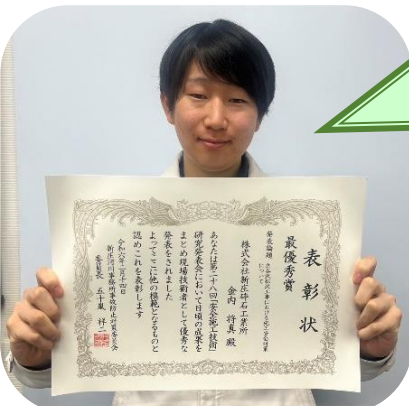 表彰状
最優秀賞
発表論題
について
株式会社新庄砕石工業所
金内 将真 殿
あなたは第二十八回「安全施工技術
研究発表会」において日頃の成果を
まとめ現場技術者として優秀な
発表をされました
よってここに他の模範となるものと
認めこれを表彰します
令和六年二月十四日
新庄河川事務所事故防止対策委員会
委員長 五十嵐 祥二